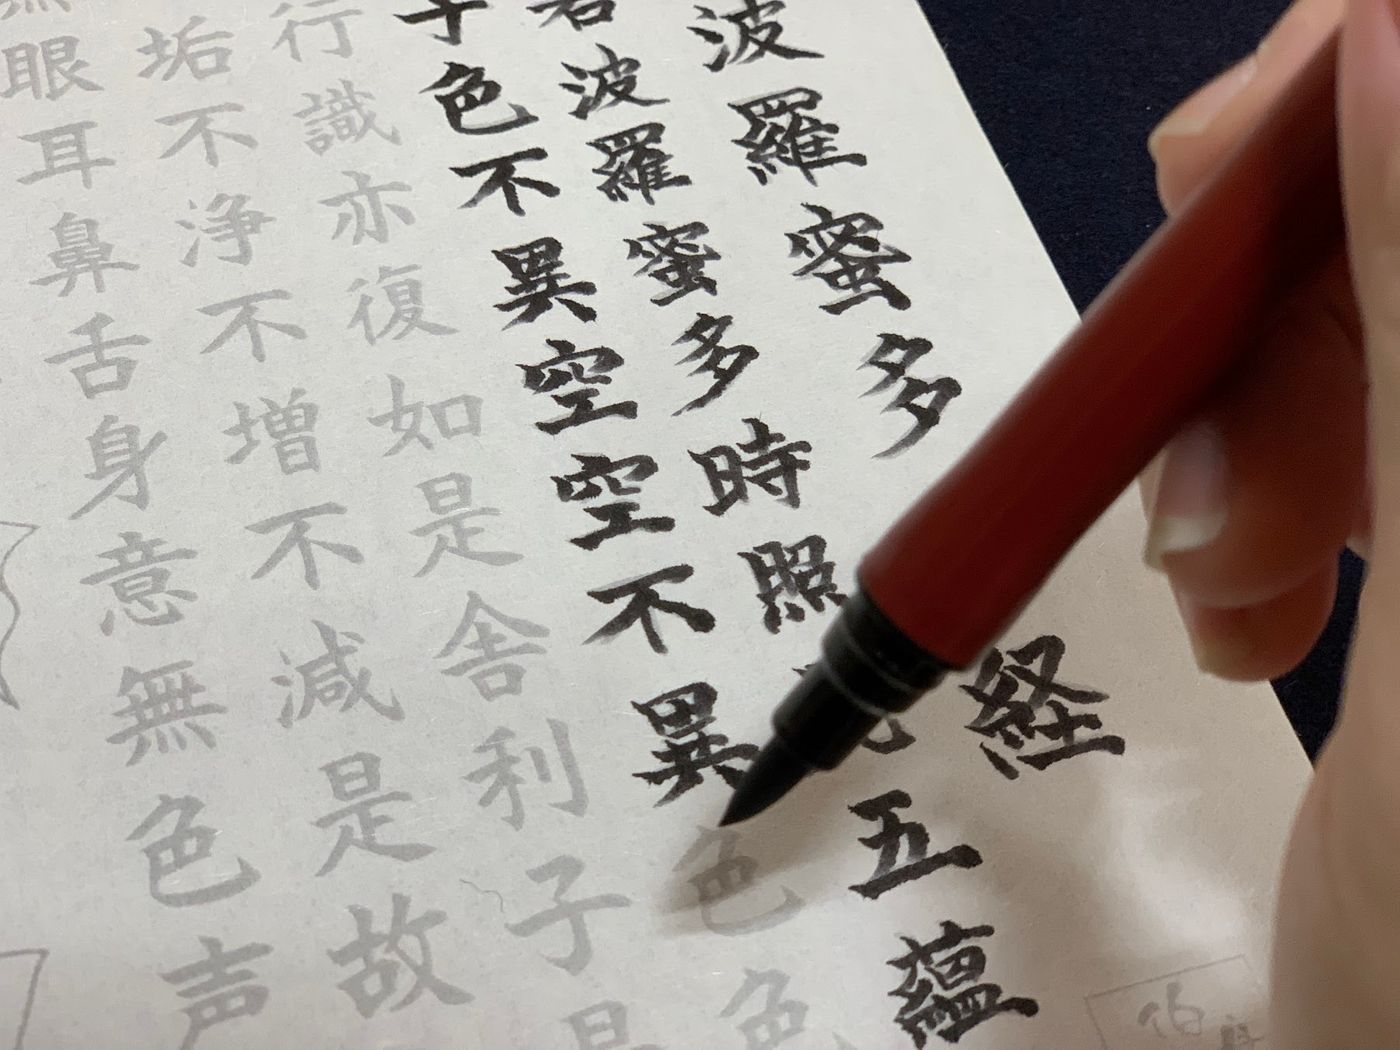 波羅蜜多経
若波羅蜜多時照五蘊
子色不異空空不異色色
行識亦復如是舎利子是
垢不浄不増不減是故
眼耳鼻舌身意無色声